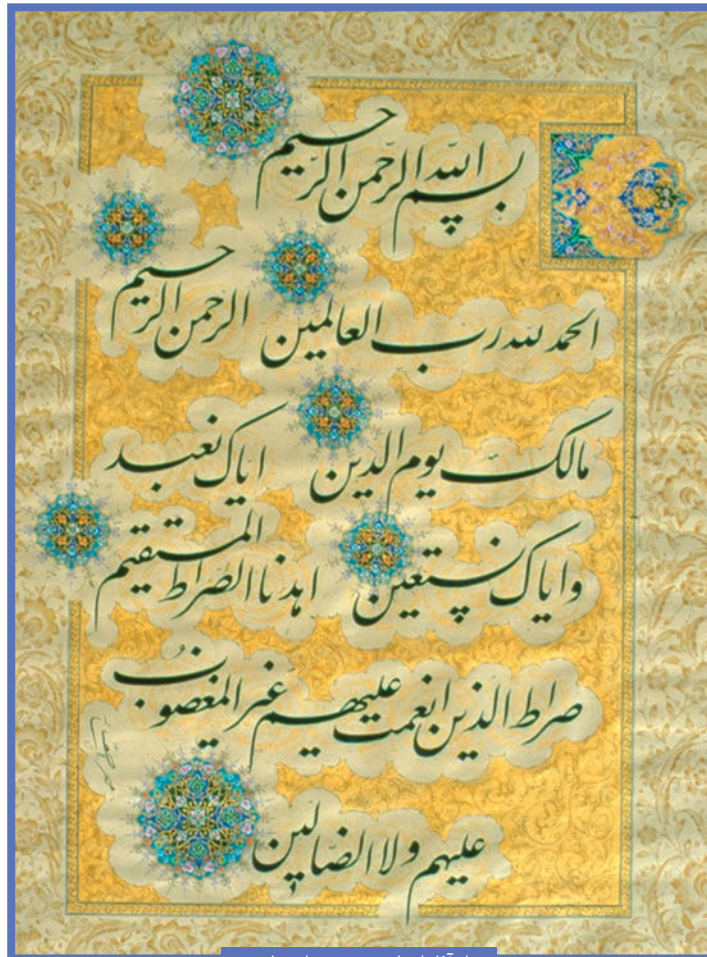 بسم الله الرّحمن الرّحیم
الحمد لله رب العالمین الرحمن الرحیم
مالک یوم الدین ایاک نعبد
وایاک نستعین اهدنا الصّراط المستقیم
صراط الّذین انعمت علیهم غیر المغضوب
علیهم ولا الضّالّین